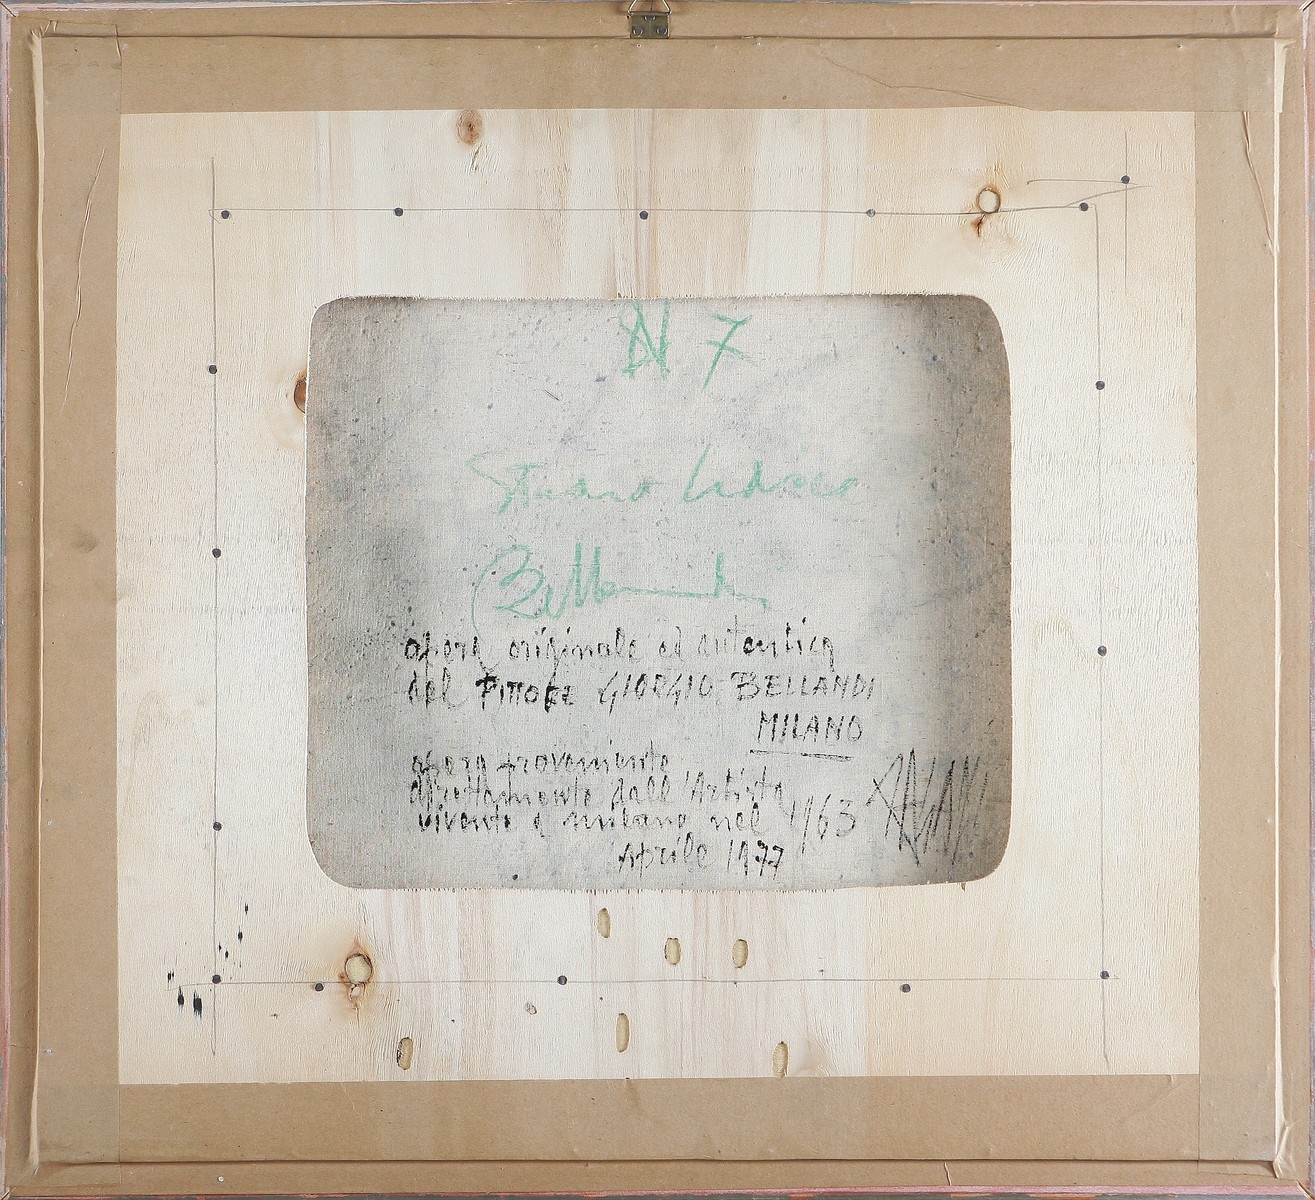 N 7
Bellandi
opera originale ed autentica
del PITTORE GIORGIO BELLANDI
MILANO
opera proveniente
direttamente dall'Artista
vivente a milano nel 1963
Aprile 1977